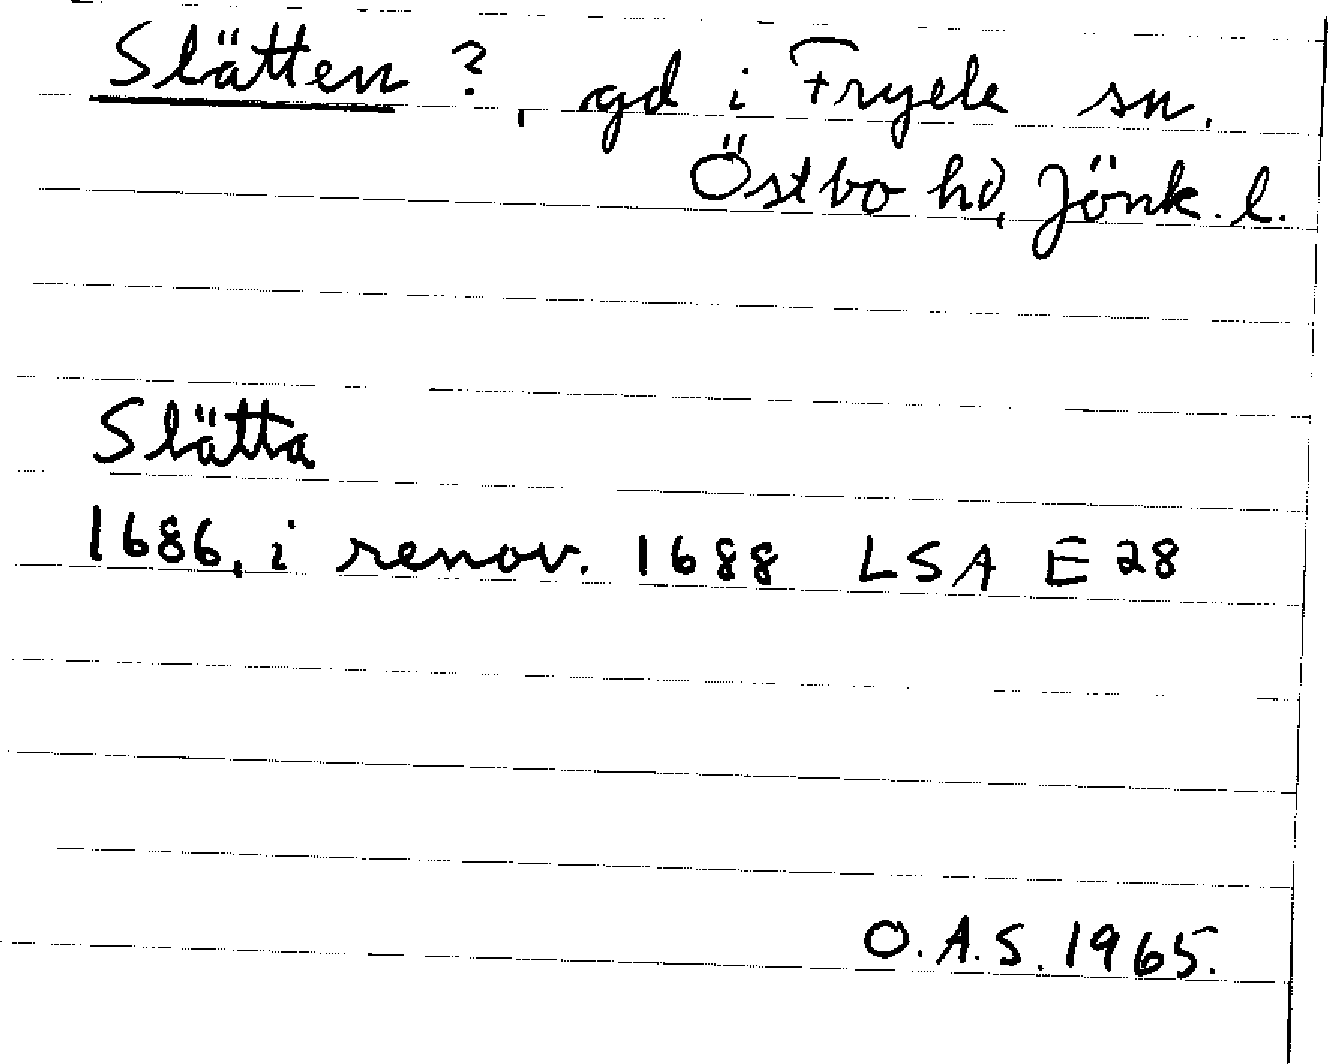 Slätten ?, gd i Fryele sn.
Östbo hd, Jönk. l.
Slätta
1686, i renov. 1688 LSA E 28
O.A.S. 1965.